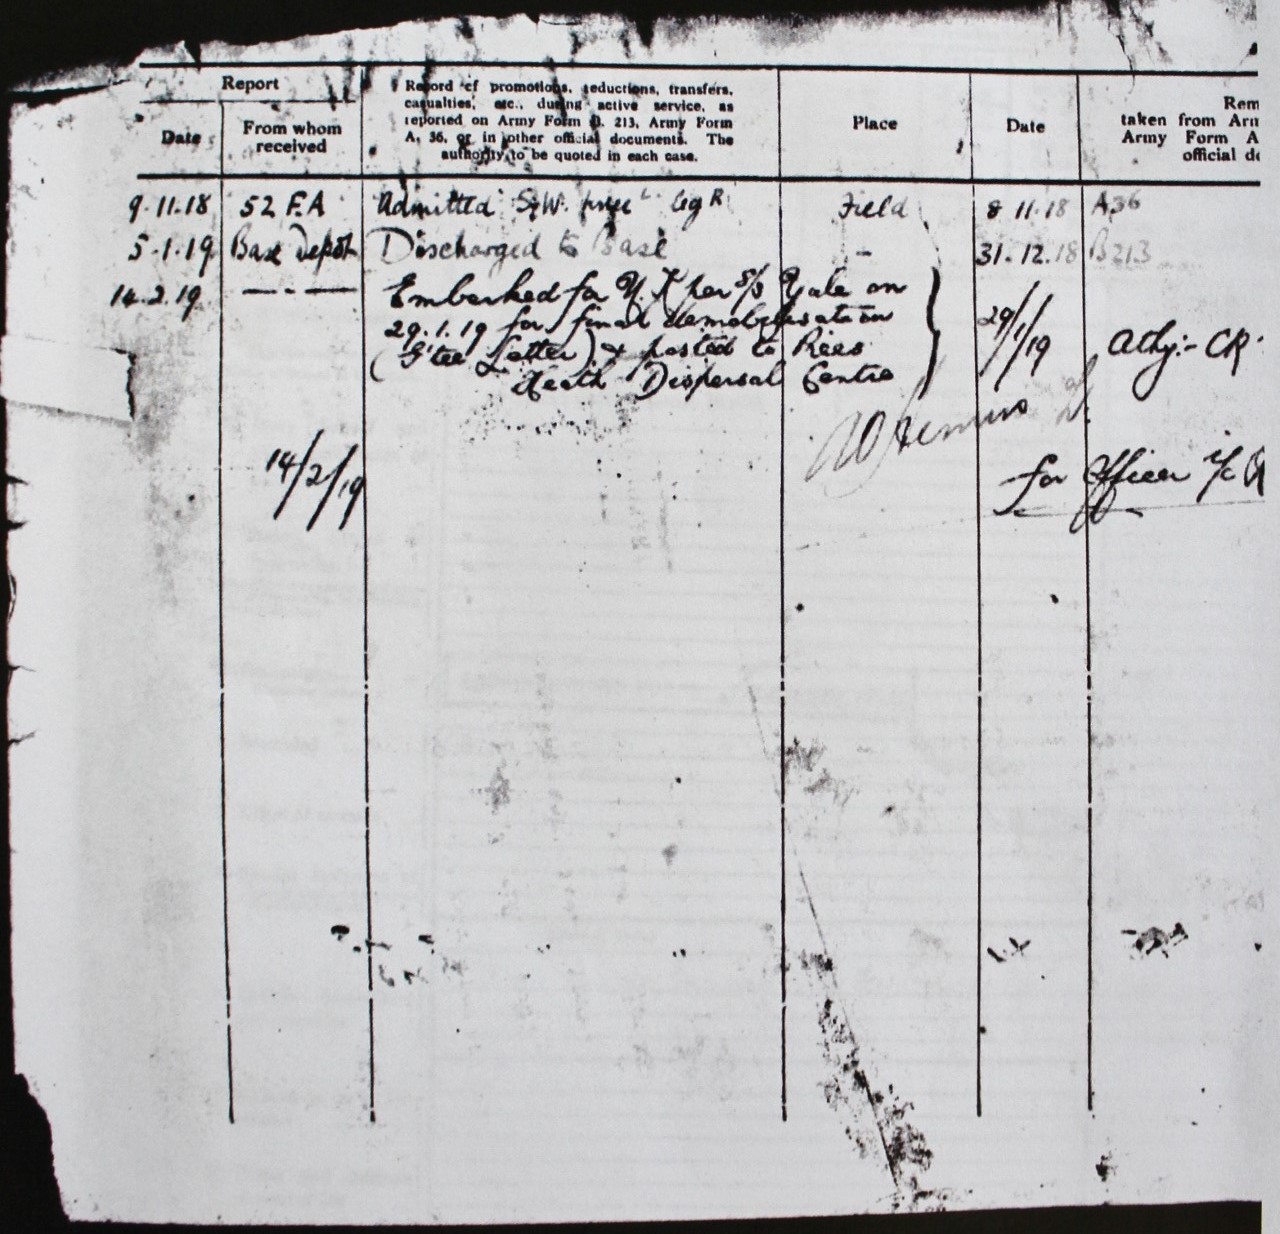 Report
Date
From whom
received
Record of promotions, reductions, transfers,
casualties, etc., during active service, as
reported on Army Form B. 213, Army Form
A. 36, or in other official documents. The
authority to be quoted in each case.
Place
Date
Rem
taken from Arm
Army Form A
official do
9.11.18 52 F.A Admitted S.W. knee L leg R Field 8 11.18 A36
5.1.19 Base Depot Discharged to Base - 31.12.18 B213
14.2.19 — - — Embarked for U.K per S/S Yale on
29.1.19 for final demobilisation 29/1/19
(G'tee Letter) & posted to Rees Athy:- CR
Heath Dispersal Centre
14/2/19
for Officer i/c